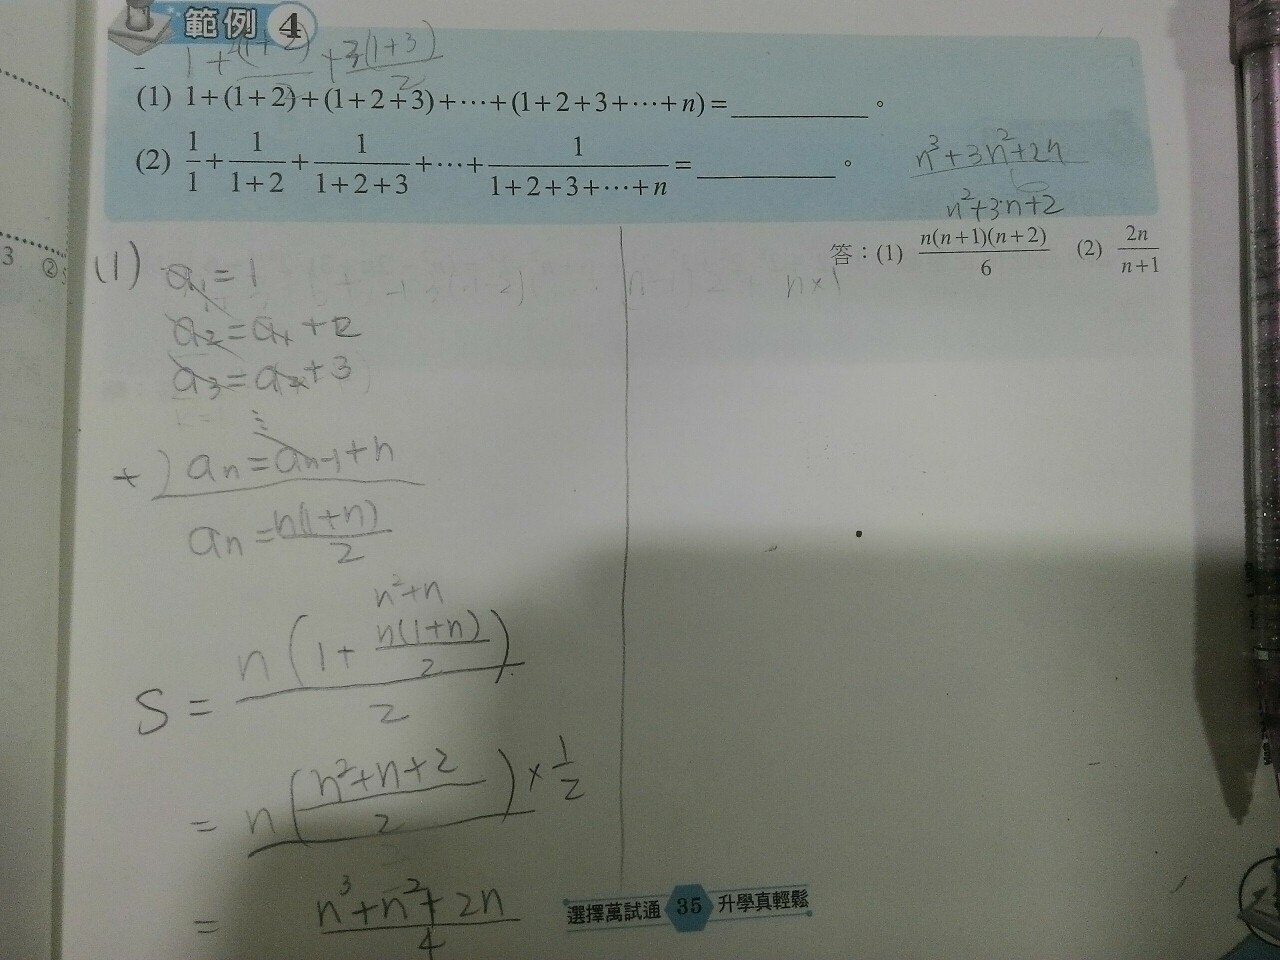 範例 4
1+2(1+2)/2+3(1+3)/2
(1) 1+(1+2)+(1+2+3)+⋯+(1+2+3+⋯+n)=__________。
(2) 1/1+1/(1+2)+1/(1+2+3)+⋯+1/(1+2+3+⋯+n)=__________。
(n³+3n²+2n)/6
n²+3n+2
答：(1) n(n+1)(n+2)/6 (2) 2n/(n+1)
3 ②
(1) a₁=1
n×1
a₂=a₁+2
a₃=a₂+3
⋮
+) aₙ=aₙ₋₁+n
aₙ=n(1+n)/2
n²+n
S=n(1+n(1+n)/2)/2
=n((n²+n+2)/2)×1/2
=(n³+n²+2n)/4
選擇萬試通 35 升學真輕鬆